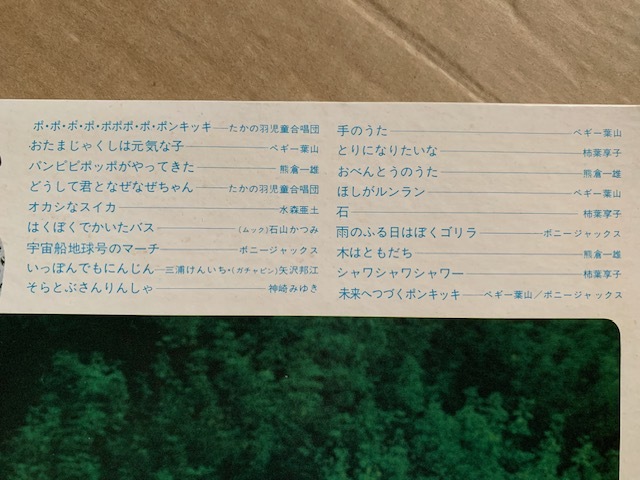 ポ・ポ・ポ・ポ・ポポポ・ポ・ポンキッキ――たかの羽児童合唱団
おたまじゃくしは元気な子――ペギー葉山
パンピピポッポがやってきた――熊倉一雄
どうして君となぜなぜちゃん――たかの羽児童合唱団
オカシなスイカ――水森亜土
はくぼくでかいたバス――(ムック)石山かつみ
宇宙船地球号のマーチ――ボニージャックス
いっぽんでもにんじん――三浦けんいち・(ガチャピン)矢沢邦江
そらとぶさんりんしゃ――神崎みゆき
手のうた――ペギー葉山
とりになりたいな――柿葉享子
おべんとうのうた――熊倉一雄
ほしがルンラン――ペギー葉山
石――柿葉享子
雨のふる日はぼくゴリラ――ボニージャックス
木はともだち――熊倉一雄
シャワシャワシャワー――柿葉享子
未来へつづくポンキッキ――ペギー葉山／ボニージャックス